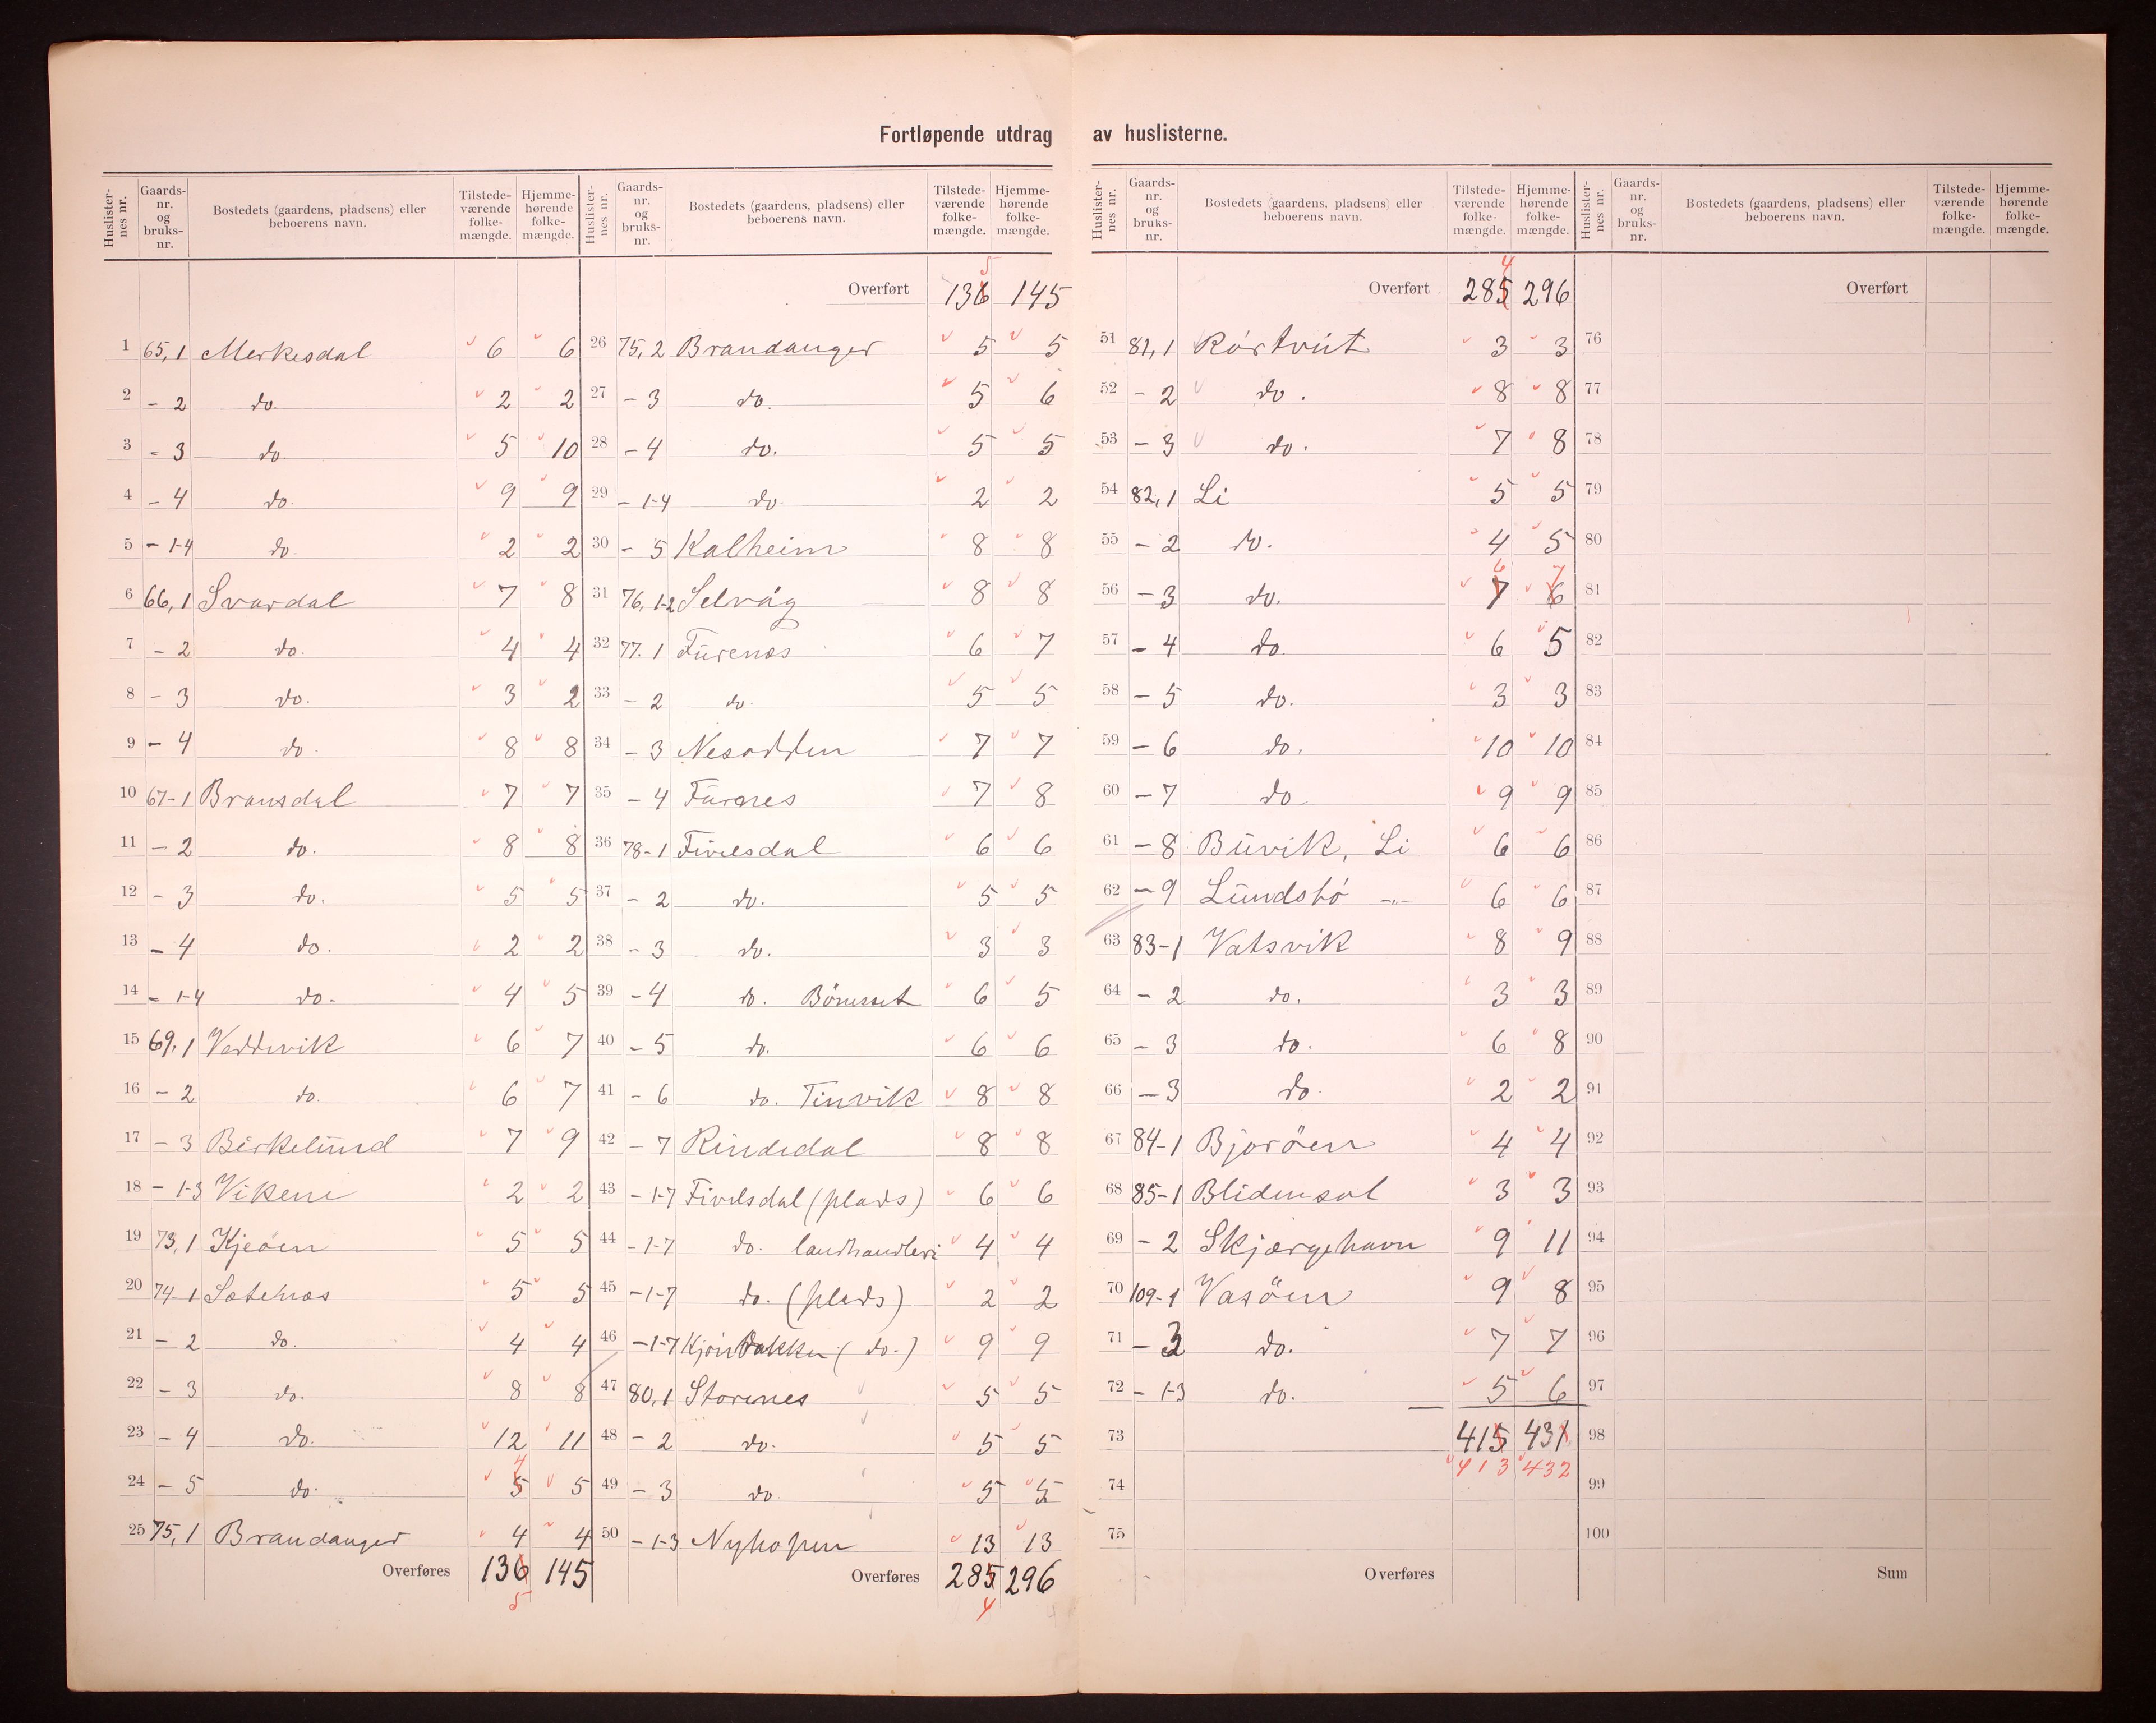 Fortløpende utdrag av huslisterne.
Huslisternes nr. Gaards-nr. og bruks-nr. Bostedets (gaardens, pladsens) eller beboerens navn. Tilstedeværende folkemængde. Hjemmehørende folkemængde.
1 65,1 Merkesdal 6 6
2 - 2 do. 2 2
3 - 3 do. 5 10
4 - 4 do. 9 9
5 - 1-4 do. 2 2
6 66,1 Svardal 7 8
7 - 2 do. 4 4
8 - 3 do. 3 2
9 - 4 do. 8 8
10 67-1 Bransdal 7 7
11 - 2 do. 8 8
12 - 3 do. 5 5
13 - 4 do. 2 2
14 - 1-4 do. 4 5
15 69,1 Veddvik 6 7
16 - 2 do. 6 7
17 - 3 Birkelund 7 9
18 - 1-3 Vikene 2 2
19 73,1 Kjeöen 5 5
20 74-1 Sætenæs 5 5
21 - 2 do. 4 4
22 - 3 do. 8 8
23 - 4 do. 12 11
24 - 5 do. 5 4 5
25 75,1 Brandanger 4 4
Overføres 136 5 145
Huslisternes nr. Gaards-nr. og bruks-nr. Bostedets (gaardens, pladsens) eller beboerens navn. Tilstedeværende folkemængde. Hjemmehørende folkemængde.
Overført 136 5 145
26 75,2 Brandanger 5 5
27 - 3 do. 5 6
28 - 4 do. 5 5
29 - 1-4 do. 2 2
30 - 5 Kalheim 8 8
31 76,1-2 Selvåg 8 8
32 77.1 Furenæs 6 7
33 - 2 do. 5 5
34 - 3 Nesodden 7 7
35 - 4 Furnes 7 8
36 78-1 Fivelsdal 6 6
37 - 2 do. 5 5
38 - 3 do. 3 3
39 - 4 do. 6 5
40 - 5 do. 6 6
41 - 6 do. Tinvik 8 8
42 - 7 Rindedal 8 8
43 - 1-7 Fivelsdal (plads) 6 6
44 - 1-7 do. landhandleri 4 4
45 - 1-7 do. (plads) 2 2
46 - 1-7 (do.) 9 9
47 80,1 Storenes 5 5
48 - 2 do. 5 5
49 - 3 do. 5 5
50 - 1-3 Nyhopen 13 13
Overføres 285 4 296
Huslisternes nr. Gaards-nr. og bruks-nr. Bostedets (gaardens, pladsens) eller beboerens navn. Tilstedeværende folkemængde. Hjemmehørende folkemængde.
Overført 285 4 296
51 81,1 Rörtvit 3 3
52 - 2 do. 8 8
53 - 3 do. 7 8
54 82,1 Li 5 5
55 - 2 do. 4 5
56 - 3 do. 7 6 6 7
57 - 4 do. 6 5
58 - 5 do. 3 3
59 - 6 do. 10 10
60 - 7 do. 9 9
61 - 8 Buvik, Li 6 6
62 - 9 Lundsbö -"- 6 6
63 83-1 Vatsvik 8 9
64 - 2 do. 3 3
65 - 3 do. 6 8
66 - 3 do. 2 2
67 84-1 Bjoröen 4 4
68 85-1 Blidensol 3 3
69 - 2 Skjærgehavn 9 11
70 109-1 Vasöen 9 8
71 - 3 do. 7 7
72 - 1-3 do. 5 6
73 415 431
74 413 432
75
Overføres
Huslisternes nr. Gaards-nr. og bruks-nr. Bostedets (gaardens, pladsens) eller beboerens navn. Tilstedeværende folkemængde. Hjemmehørende folkemængde.
Overført
76
77
78
79
80
81
82
83
84
85
86
87
88
89
90
91
92
93
94
95
96
97
98
99
100
Sum